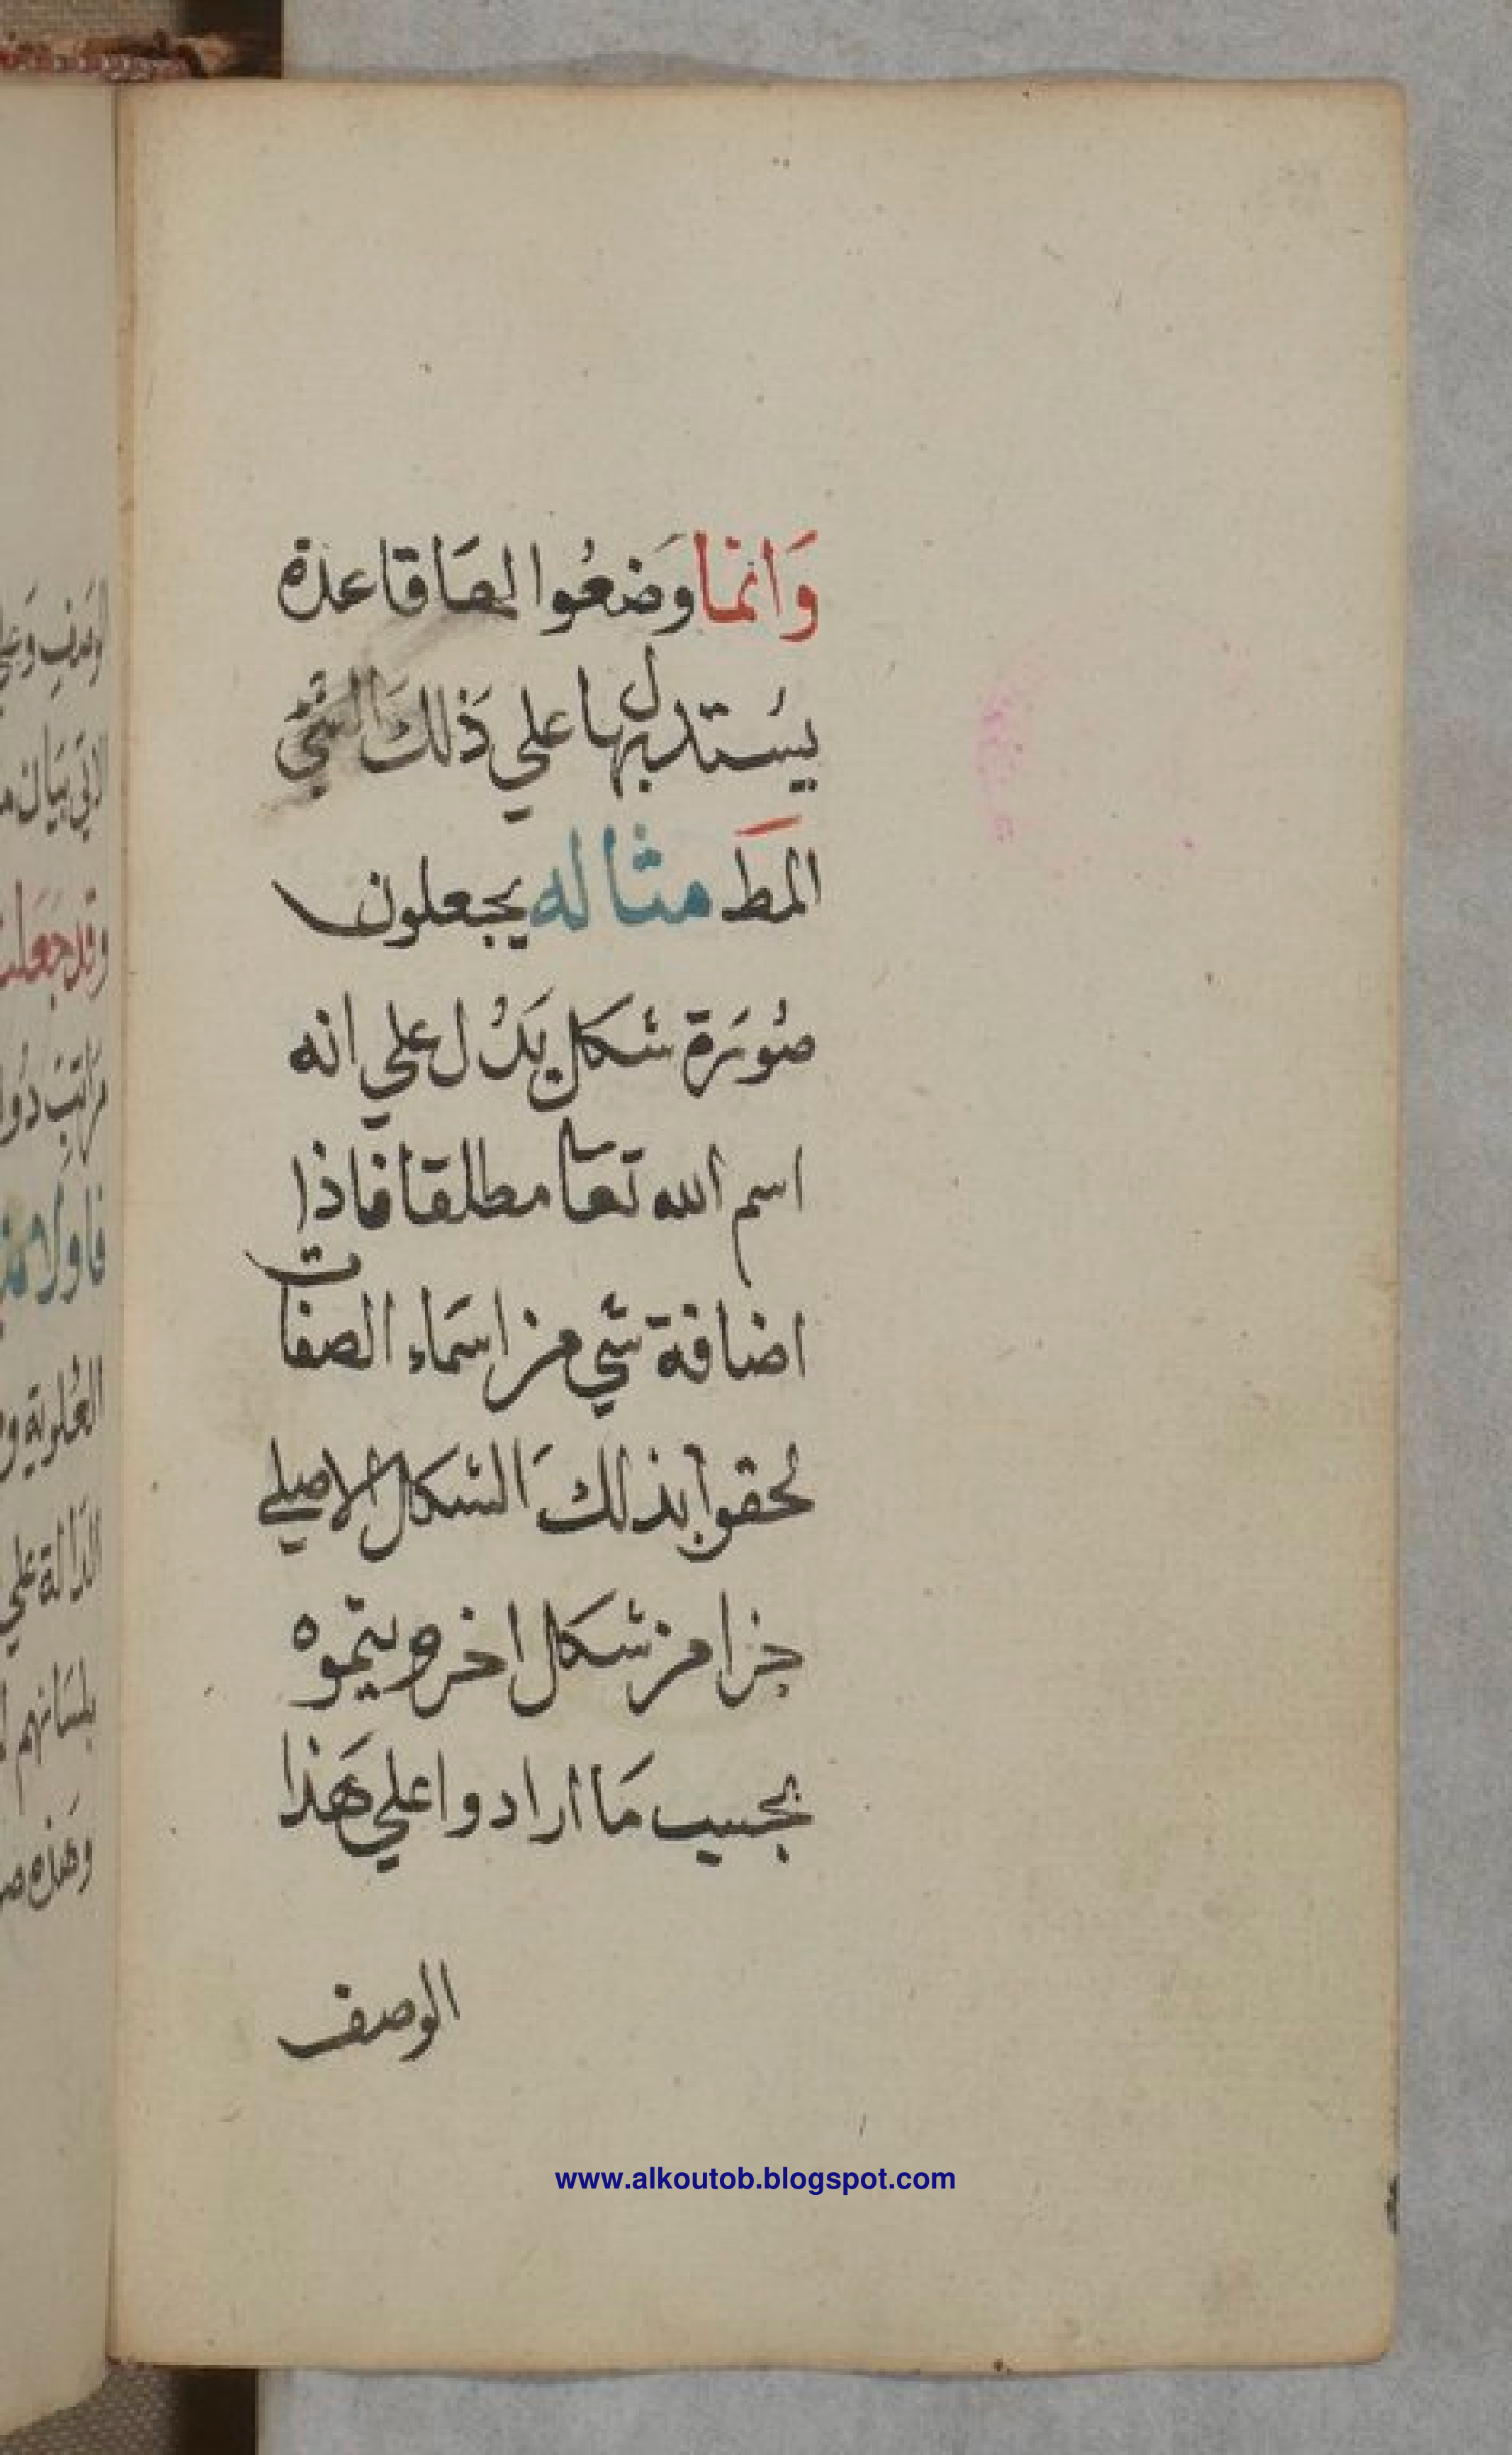 وَانما وَضعُوا لهَا قاعدة
يسُتدل بها علي ذَلكَ الشَي
المطَ مثاله يجعلون
صُورَة شكل يَدُل علي انه
اسم الله تعا مطلقا فاذا
اضافة شي من اسَماء الصفات
لحقوا بذلكَ الشكل الاصلي
جزا من شكل اخر ويتموه
بحسب مَا ارادوا علي هَذا
الوصف
www.alkoutob.blogspot.com